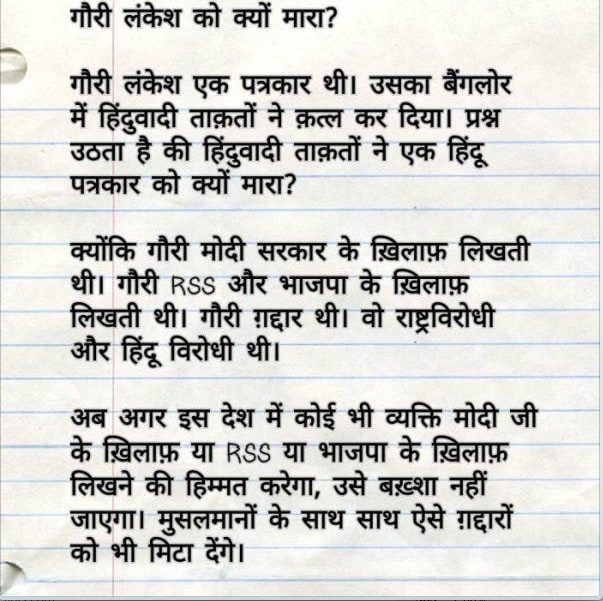 गौरी लंकेश को क्यों मारा?
गौरी लंकेश एक पत्रकार थी। उसका बैंगलोर
में हिंदुवादी ताक़तों ने क़त्ल कर दिया। प्रश्न
उठता है की हिंदुवादी ताक़तों ने एक हिंदू
पत्रकार को क्यों मारा?
क्योंकि गौरी मोदी सरकार के ख़िलाफ़ लिखती
थी। गौरी RSS और भाजपा के ख़िलाफ़
लिखती थी। गौरी ग़द्दार थी। वो राष्ट्रविरोधी
और हिंदू विरोधी थी।
अब अगर इस देश में कोई भी व्यक्ति मोदी जी
के ख़िलाफ़ या RSS या भाजपा के ख़िलाफ़
लिखने की हिम्मत करेगा, उसे बख़्शा नहीं
जाएगा। मुसलमानों के साथ साथ ऐसे ग़द्दारों
को भी मिटा देंगे।